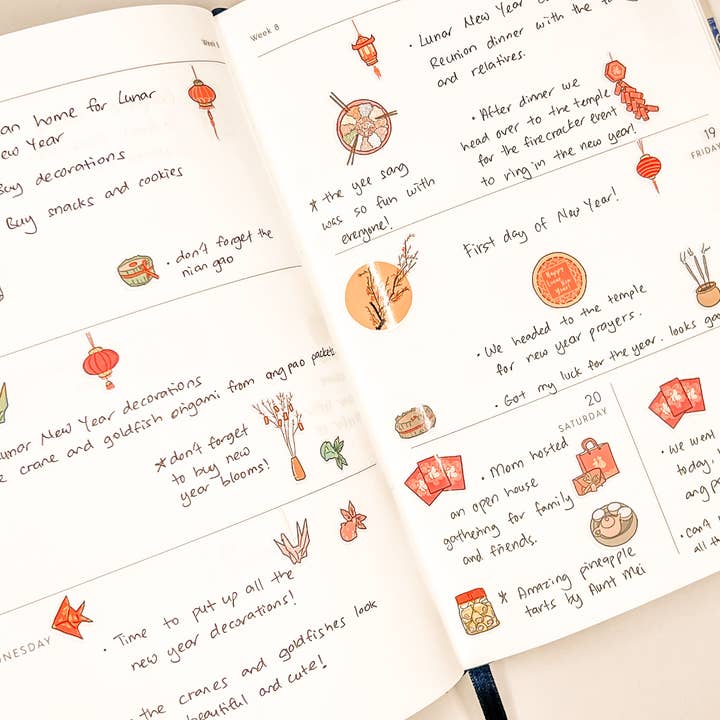 Week 8
an home for Lunar
ew Year
Buy decorations
Buy snacks and cookies
• don't forget the
nian gao
unar New Year decorations
crane and goldfish origami from angpao packets
* don't forget
to buy new
year blooms!
NESDAY
• Time to put up all the
new year decorations!
the cranes and goldfishes look
beautiful and cute!
Week 8
• Lunar New Year
Reunion dinner with the
and relatives.
• After dinner we
head over to the temple
for the firecracker event
to ring in the new year!
* the yee sang
was so fun with
everyone!
19
FRIDAY
First day of New Year!
Happy
Lunar New
Year!
• We headed to the temple
for new year prayers.
• Got my luck for the year. looks goo
20
SATURDAY
• Mom hosted
an open house
gathering for family
and friends.
* Amazing pineapple
tarts by Aunt Mei
• We went
today.
angpa
• can't
all th